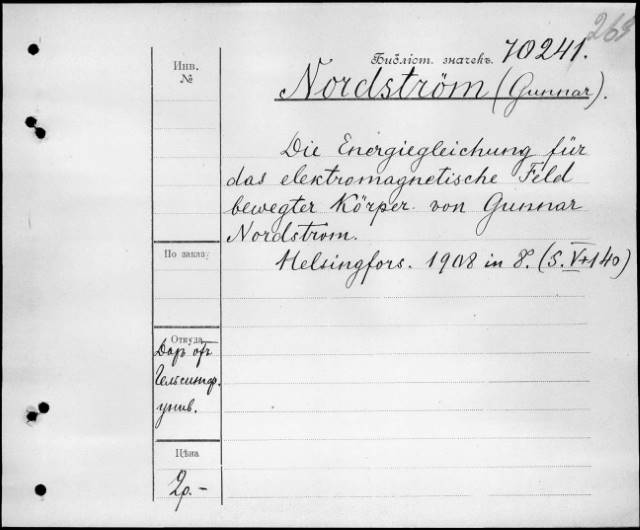 Библіот. значекъ. 70241.
Инв.
№
Nordström (Gunnar).
Die Energiegleichung für
das elektromagnetische Feld
bewegter Körper von Gunnar
Nordström.
По заказу
Helsingfors. 1908 in 8. (S. V+140)
Откуда
Даръ отъ
Гельсингф.
унив.
Цѣна
2р.-